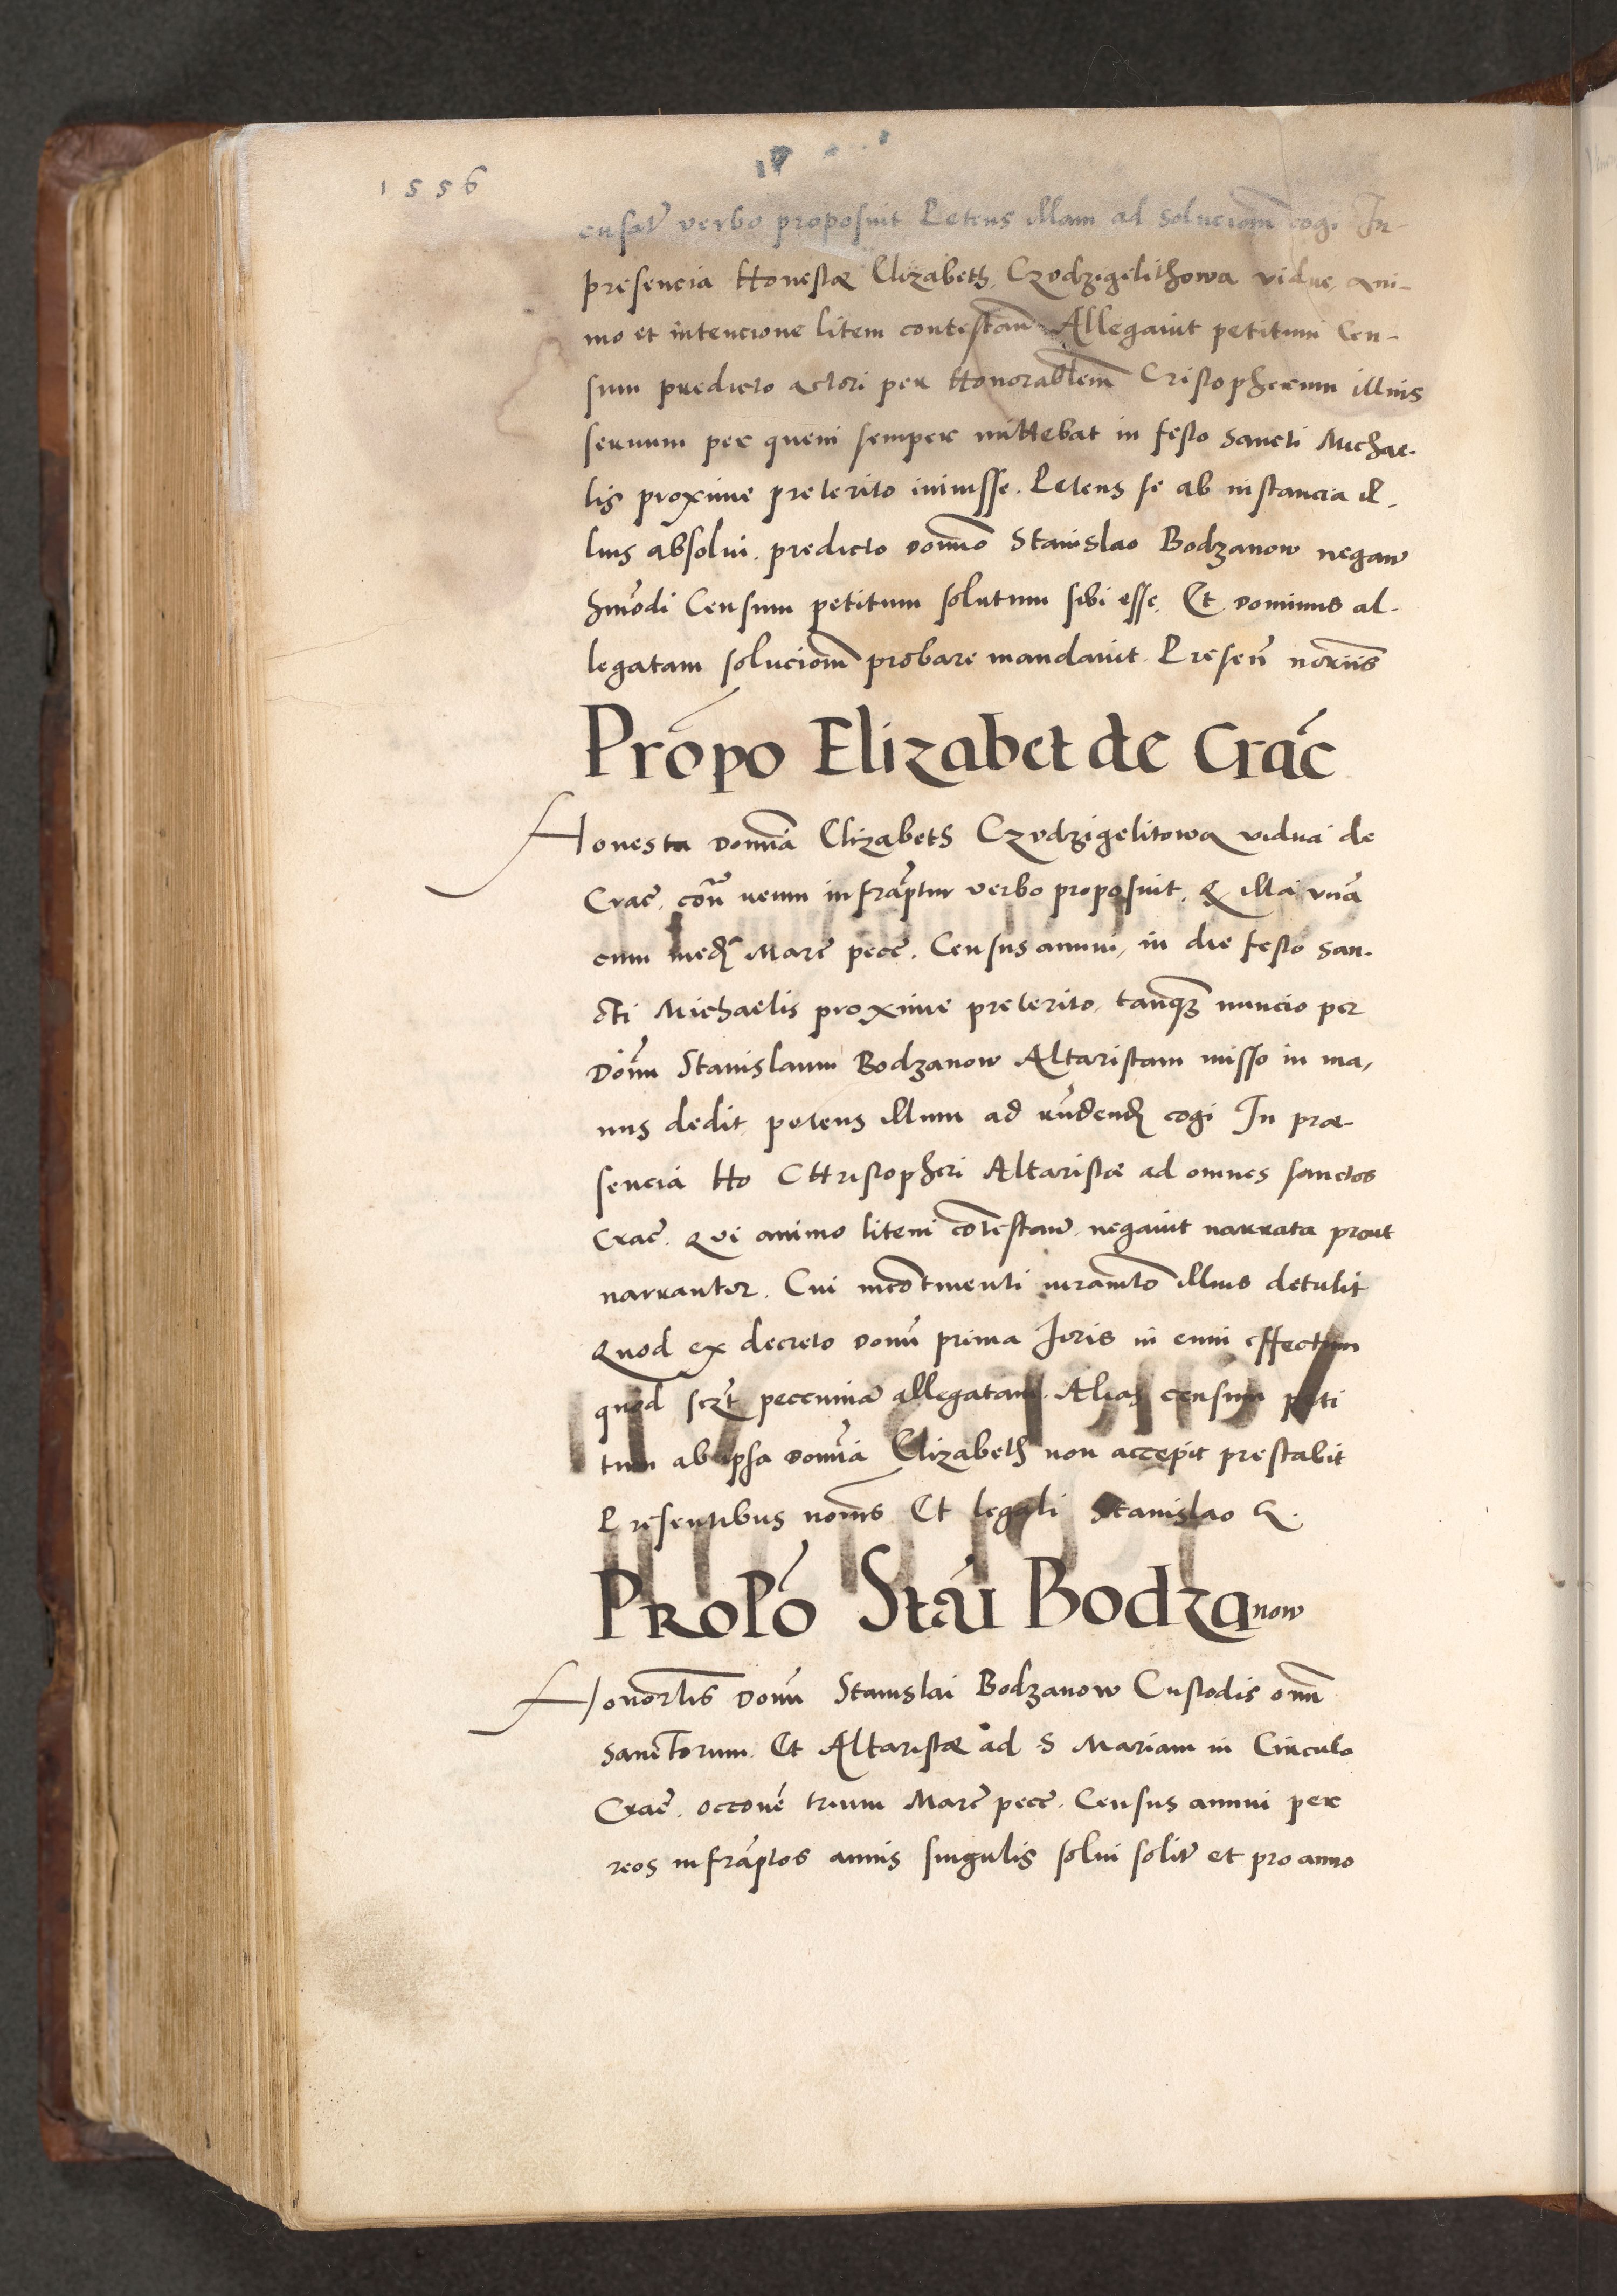 1556
verbo proposuit Petens illam ad soluciom̃ cogi In-
presencia Honestæ Elizabeth Czvdzigelithowa vidue, ani-
mo et intencione litem contestañ. Allegauit petitum Cen-
sum predicto actori per Honorablem̃ Cristopherum illius
seruum per quem semper mittebat in festo Sancti Michae-
lis proxime preterito misisse. Petens se ab instancia il-
lius absolui. predicto domio Stanislao Bodzanow negañ
hm̃odi Censum petitum solutum sibi esse. Et dominus al-
legatam soluciom̃ probare mandauit. Preseñ notariis
Propõ Elizabet de Crac̃
Honesta domia Elizabeth Czvdzigelitowa vidua de
Crac̃. coñ reum infrãptur verbo proposuit. Q illa vña
cum medȩ Marc̃ pecc̃. Census annui, in die festo San-
cti Michaelis proxime preterito, tanq̃ nuncio per
Doñm Stanislaum Bodzanow Altaristam misso in ma-
nus dedit petens illum ad rñdendȩ cogi In præ-
sencia Ho CHristopheri Altaristæ ad omnes sanctos
Crac̃. Qui animo litem cõtestañ. negauit narrata prout
narrantur. Cui incõtinenti iuramto illius detulit
Quod ex decreto doñi prima Juris in eum effectum
quod peccuniã allegatam. Alias censum peti
tum ab ipsa domia Elizabeth non accepit prestabit
Presentibus Et legali Stanislao &.
PROPõ Stãi Bodzanow
Honorlis doñi Stanislai Bodzanow Custodis om̃
Sanctorum Et Altaristæ ad S Mariam in Circulo
Crac̃. occoñe trium Marc̃ pecc̃. Census annui per
reos infrãptos annis singulis solui solit̃ et pro anno